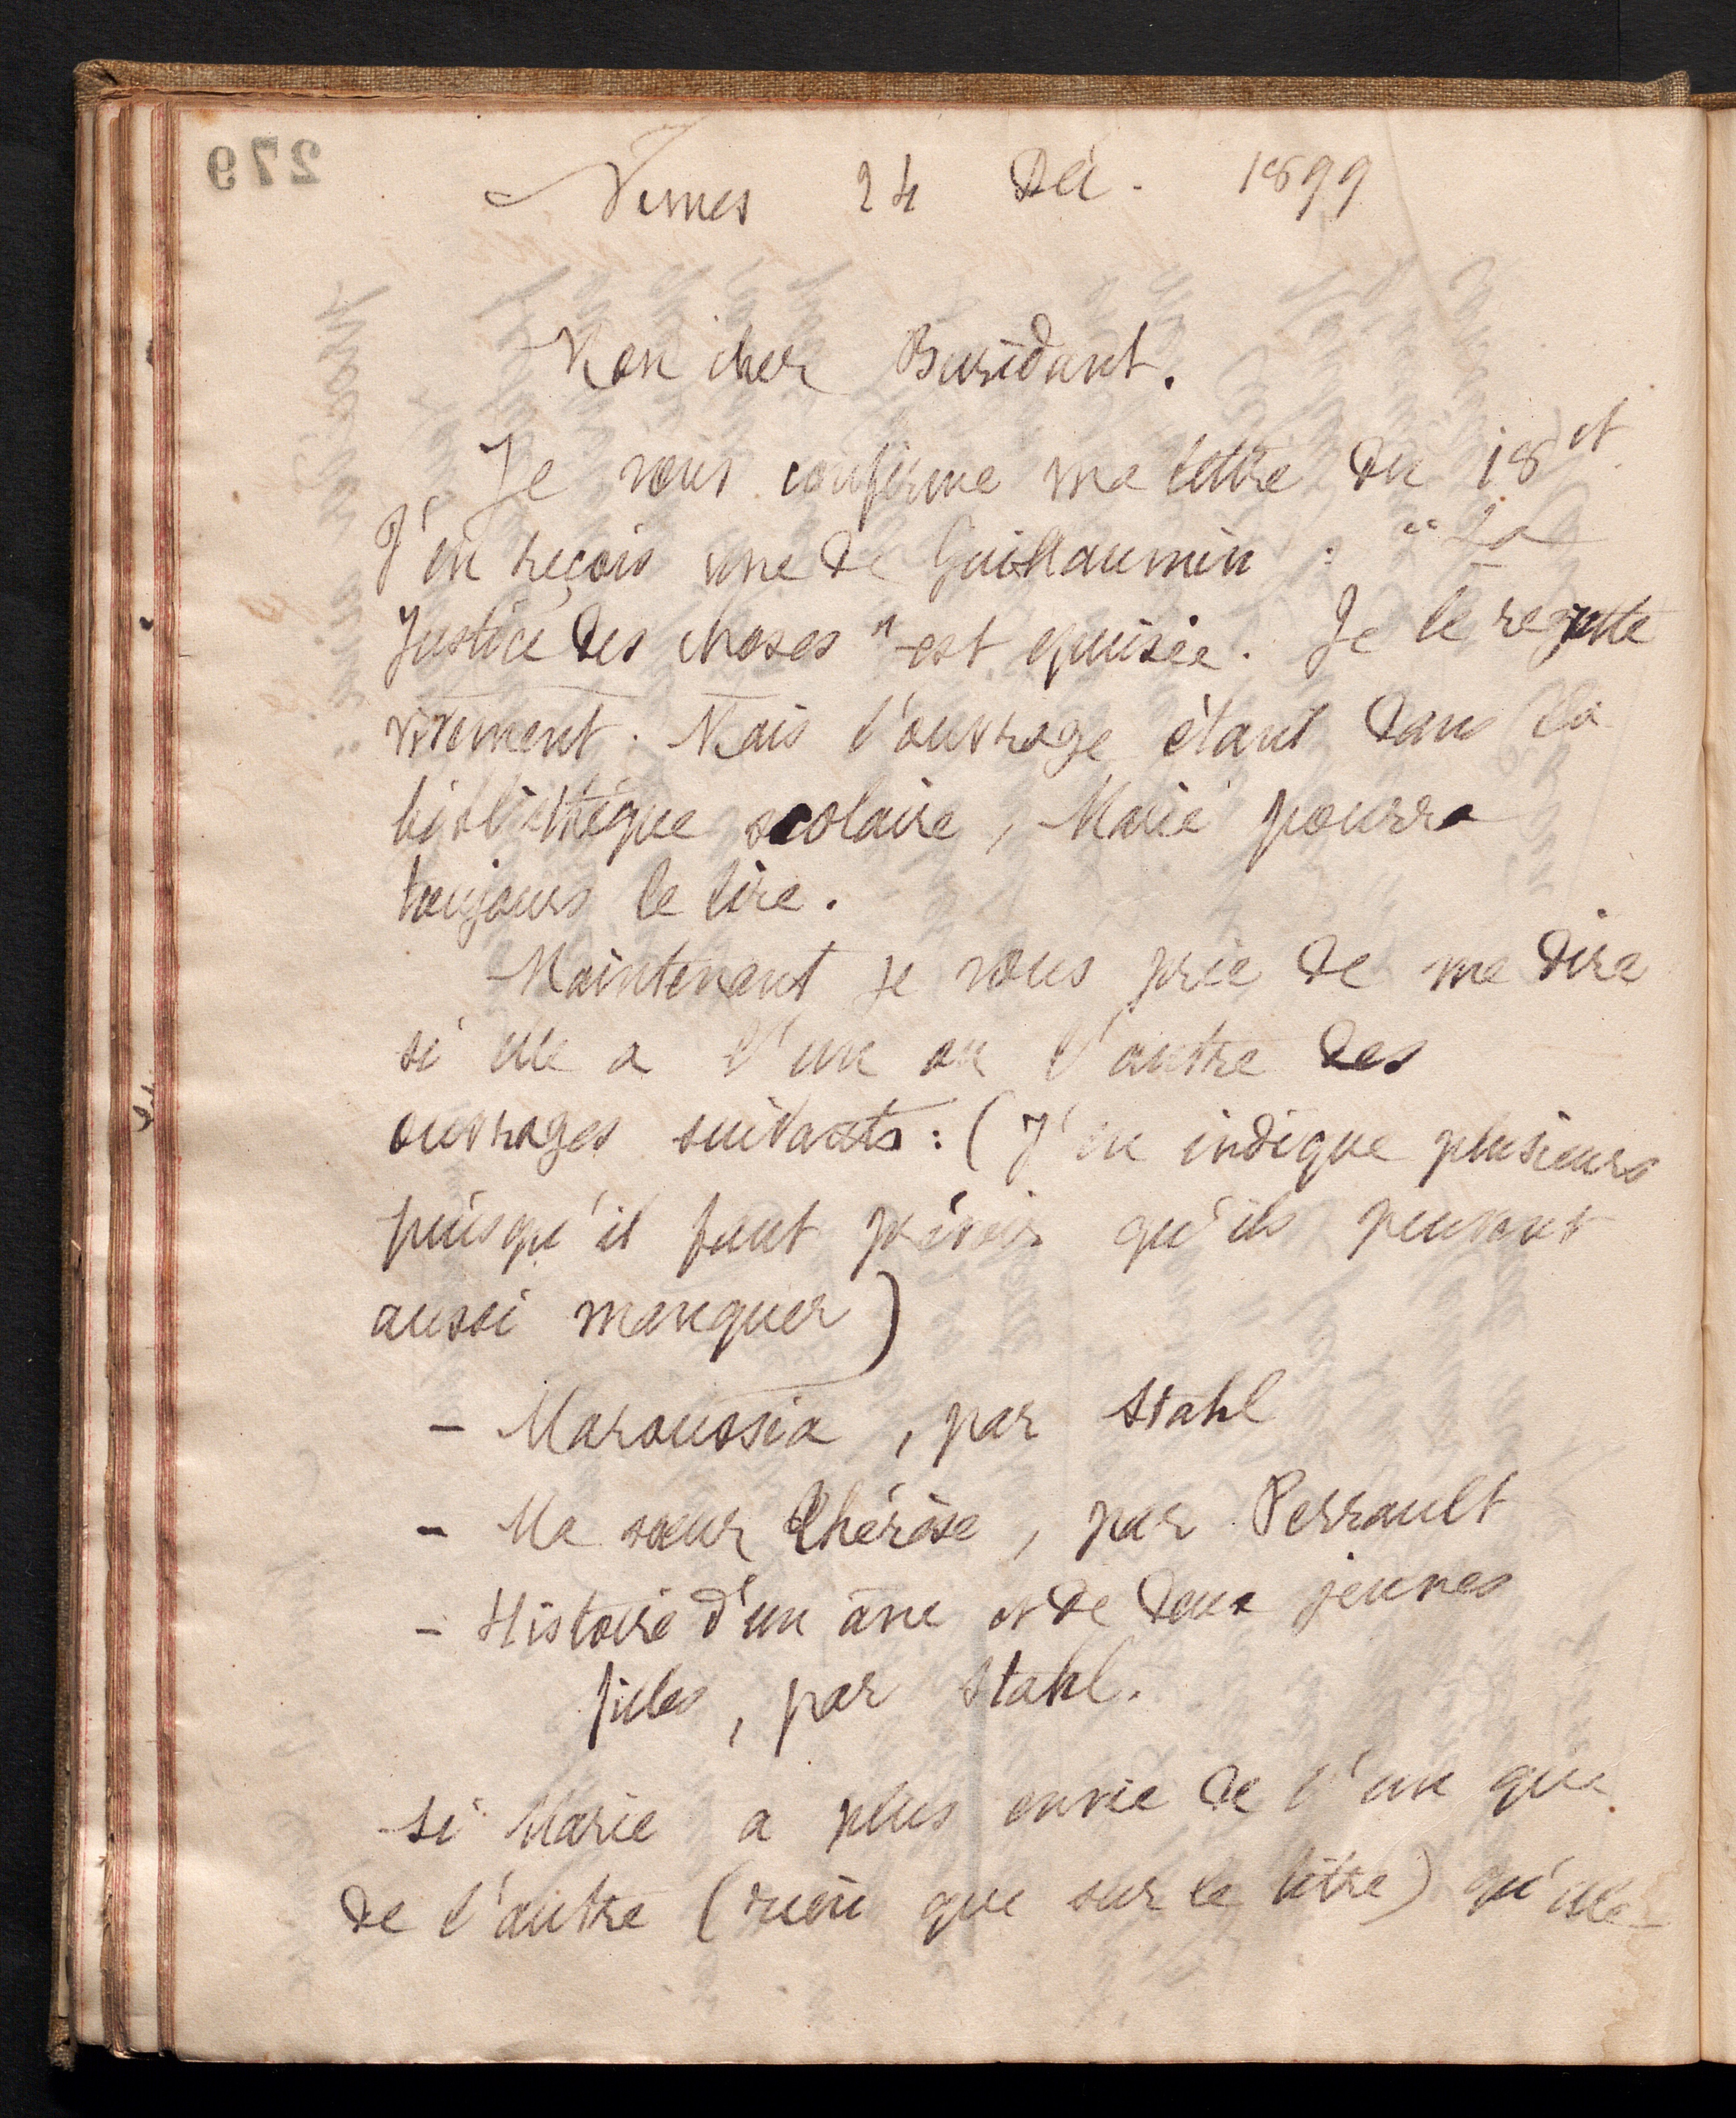 279
Nimes 24 Déc. 1899
Mon cher Buridant.
Je vous confirme ma lettre du 18 ct
J'en reçois une de Guillaumin : "La
Justice des choses" est épuisée. Je le regrette
vivement. Mais l'ouvrage étant dans la
bibliothèque scolaire, Marie pourra
toujours le lire.
Maintenant je vous prie de me dire
si elle a l'un ou l'autre des
ouvrages suivants : (J'en indique plusieurs
puisqu'il faut prévoir qu'ils peuvent
aussi manquer)
- Maroussia, par Stahl
- Ma sœur Thérèse, par Perrault
- Histoire d'un âne et de deux jeunes
filles, par Stahl.
Si Marie a plus envie de l'un que
de l'autre (rien que sur le titre) qu'elle